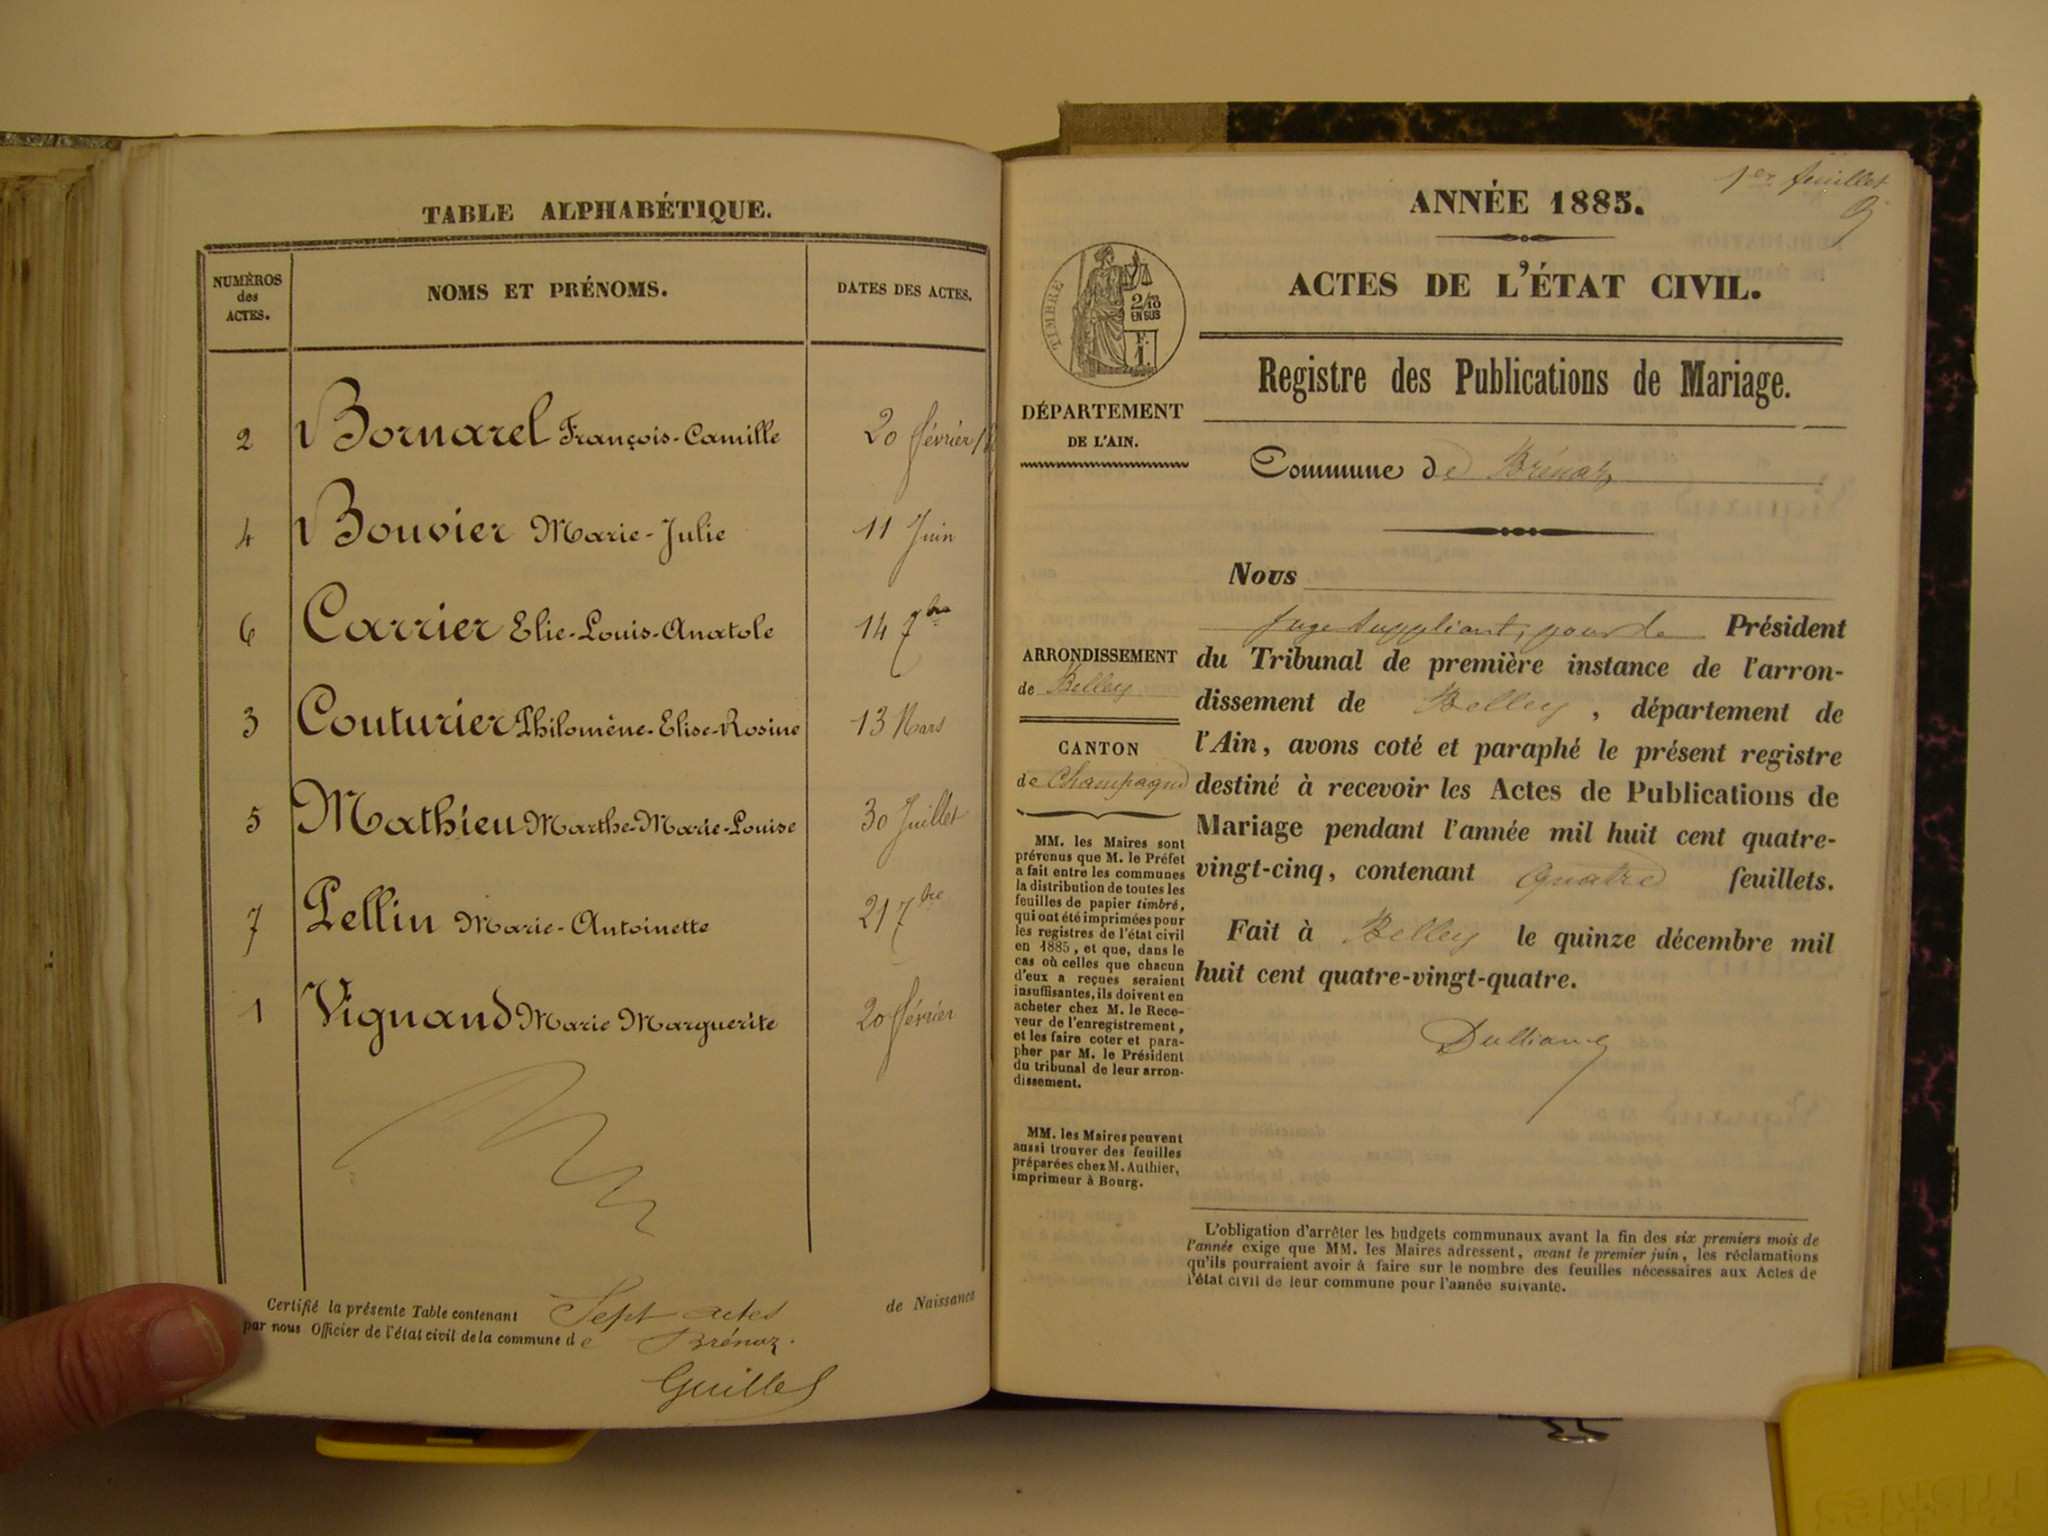 TABLE ALPHABÉTIQUE.
NUMÉROS
des
ACTES.
NOMS ET PRÉNOMS.
DATES DES ACTES.
2 Bornarel François-Camille 20 février
4 Bouvier Marie-Julie 11 Juin
6 Carrier Elie-Louis-Anatole 14 7bre
3 Couturier Philomène-Elise-Rosine 13 Mars
5 Mathieu Marthe-Marie-Louise 30 Juillet
7 Pellin Marie-Antoinette 21 7bre
1 Vignand Marie Marguerite 20 février
Certifié la présente Table contenant Sept actes de Naissance
par nous Officier de l'état civil de la commune de Brénaz.
Guillet
1er feuillet
ANNÉE 1885.
ACTES DE L'ÉTAT CIVIL.
TIMBRE
2/10
EN SUS
F.
1.
Registre des Publications de Mariage.
DÉPARTEMENT
DE L'AIN.
Commune de Brénaz
ARRONDISSEMENT
de Belley
CANTON
de Champagne
MM. les Maires sont
prévenus que M. le Préfet
a fait entre les communes
la distribution de toutes les
feuilles de papier timbré,
qui ont été imprimées pour
les registres de l'état civil
en 1885, et que, dans le
cas où celles que chacun
d'eux a reçues seraient
insuffisantes, ils doivent en
acheter chez M. le Rece-
veur de l'enregistrement,
et les faire coter et para-
pher par M. le Président
du tribunal de leur arron-
dissement.
MM. les Maires peuvent
aussi trouver des feuilles
préparées chez M. Authier,
imprimeur à Bourg.
Nous
Juge Suppléant, pour le Président
du Tribunal de première instance de l'arron-
dissement de Belley, département de
l'Ain, avons coté et paraphé le présent registre
destiné à recevoir les Actes de Publications de
Mariage pendant l'année mil huit cent quatre-
vingt-cinq, contenant quatre feuillets.
Fait à Belley le quinze décembre mil
huit cent quatre-vingt-quatre.
L'obligation d'arrêter les budgets communaux avant la fin des six premiers mois de
l'année exige que MM. les Maires adressent, avant le premier juin, les réclamations
qu'ils pourraient avoir à faire sur le nombre des feuilles nécessaires aux Actes de
l'état civil de leur commune pour l'année suivante.